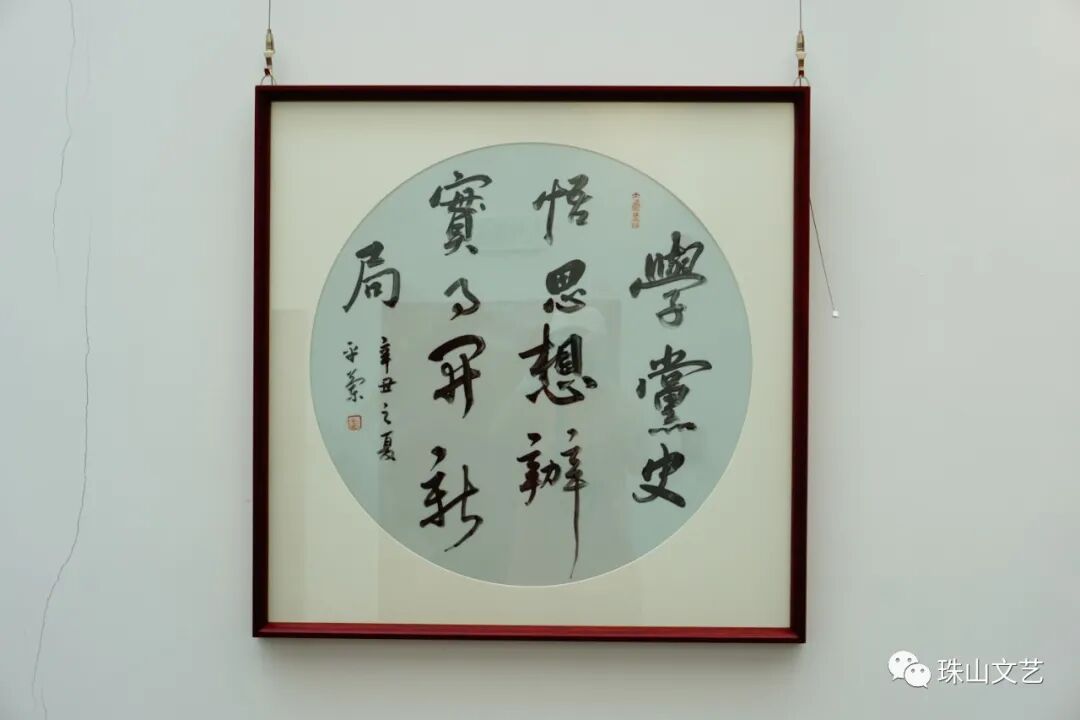 學黨史
悟思想辦
實事開新
局
辛丑之夏
平
珠山文艺